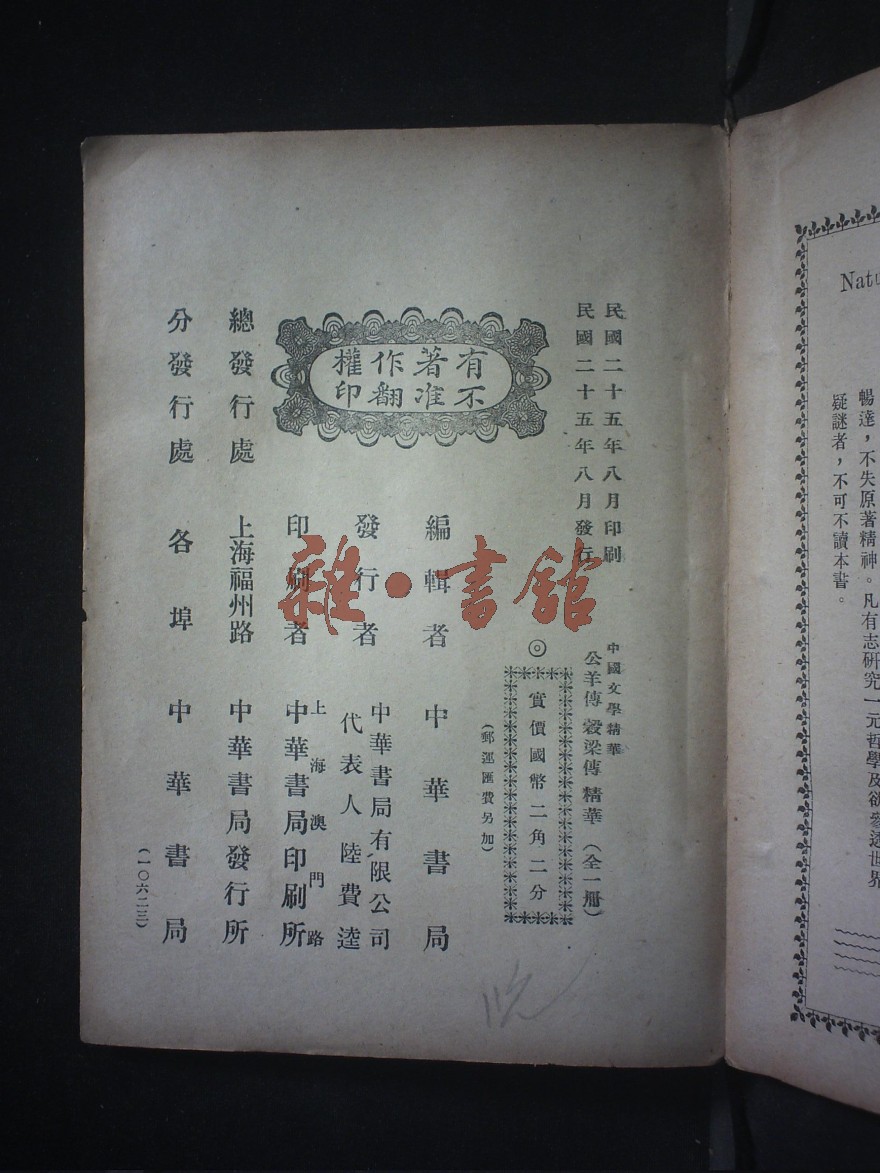 民國二十五年八月印刷
民國二十五年八月發行
中國文學精華
公羊傳 穀梁傳 精華(全一册)
◎實價國幣二角二分
(郵運匯費另加)
有著作權
不准翻印
編輯者 中華書局
發行者 中華書局有限公司
代表人 陸費逵
印刷者 上海澳門路
中華書局印刷所
總發行處 上海福州路 中華書局發行所
分發行處 各埠 中華書局
(一〇六二三)
雜·書館
Natu
暢達,不失原著精神。凡有志研究一元哲學及欲參透世界
疑謎者,不可不讀本書。